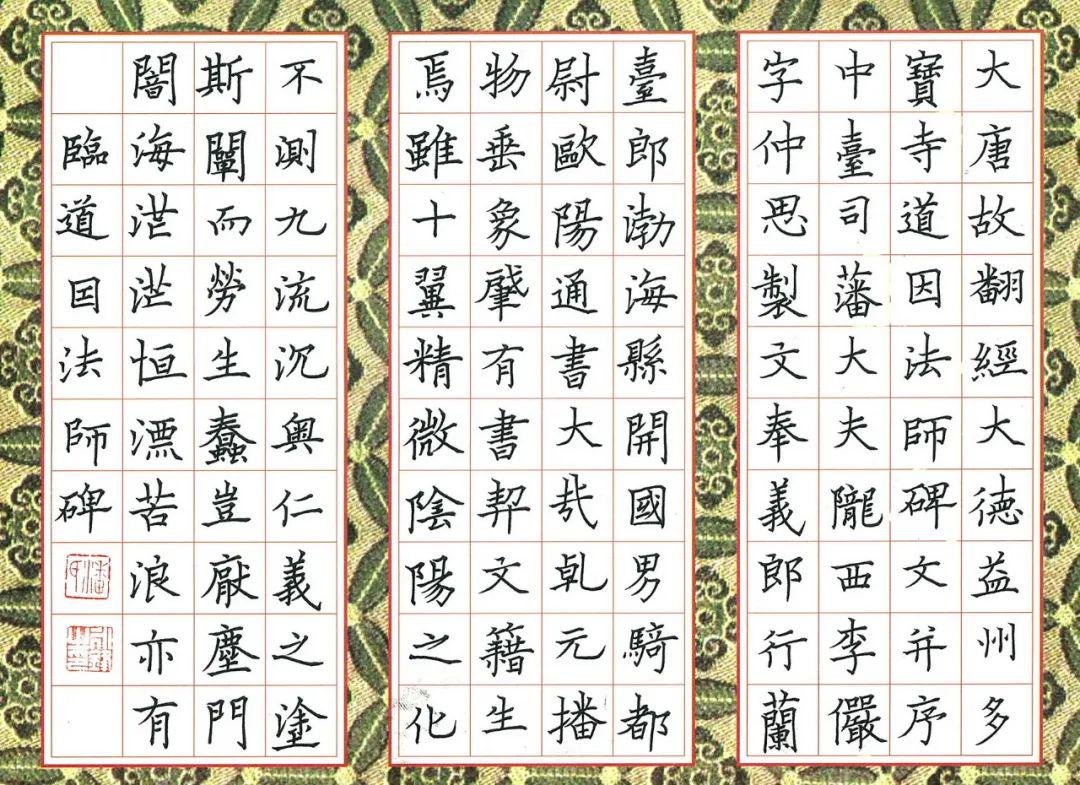 大唐故翻經大德益州多
寶寺道因法師碑文并序
中臺司藩大夫隴西李儼
字仲思製文奉義郎行蘭
臺郎渤海縣開國男騎都
尉歐陽通書大哉乾元播
物垂象肈有書契文籍生
焉雖十翼精微陰陽之化
不測九流沉奥仁義之塗
斯闡而勞生蠢豈厭塵門
闇海茫茫恒漂苦浪亦有
臨道因法師碑